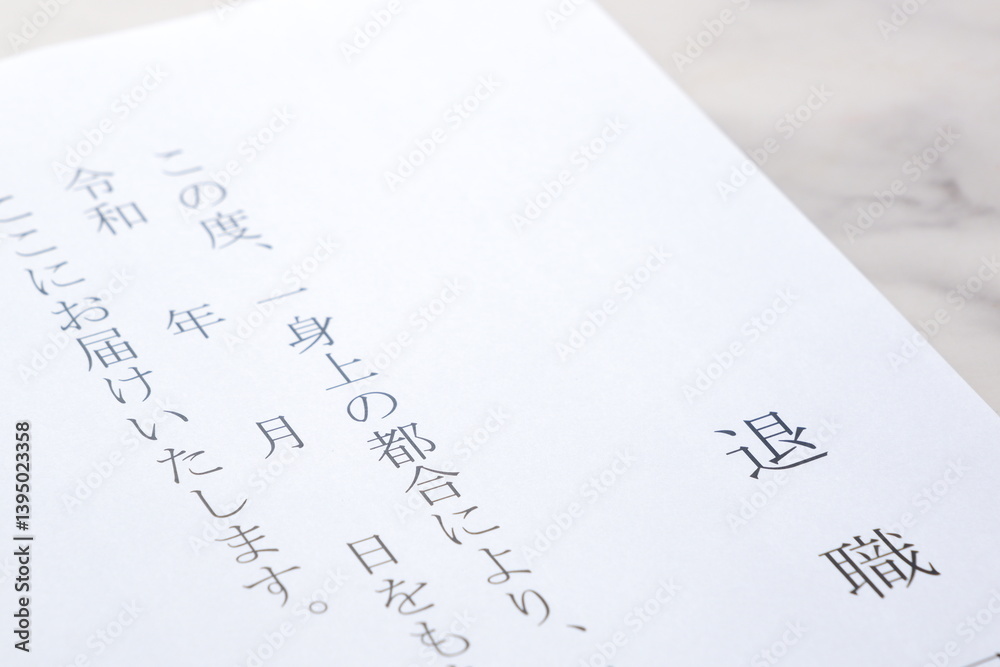 退職
この度、一身上の都合により、
令和 年 月 日をも
ここにお届けいたします。
Adobe Stock | #1395023358